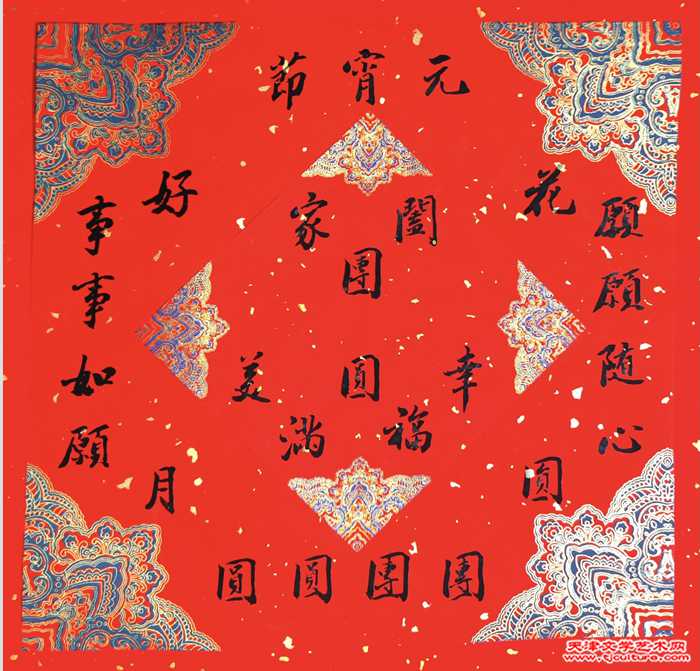 元宵節
花好月圓
願願随心
事事如願
闔家團圓
幸福美滿
團團圓圓
天津文学艺术网
www.tjcultura.com